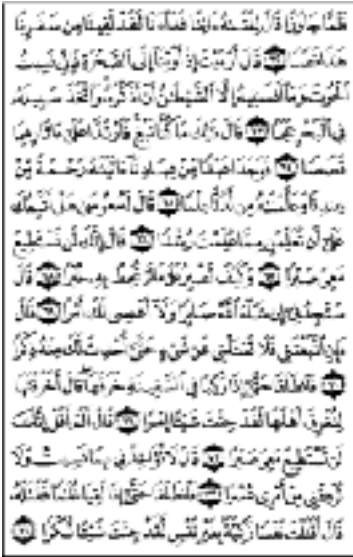 فَلَمَّا جَاوَزَا قَالَ لِفَتَىٰهُ ءَاتِنَا غَدَآءَنَا لَقَدْ لَقِينَا مِن سَفَرِنَا
هَٰذَا نَصَبًا ٦٢ قَالَ أَرَءَيْتَ إِذْ أَوَيْنَآ إِلَى ٱلصَّخْرَةِ فَإِنِّي نَسِيتُ
ٱلْحُوتَ وَمَآ أَنسَىٰنِيهُ إِلَّا ٱلشَّيْطَٰنُ أَنْ أَذْكُرَهُۥ وَٱتَّخَذَ سَبِيلَهُۥ
فِي ٱلْبَحْرِ عَجَبًا ٦٣ قَالَ ذَٰلِكَ مَا كُنَّا نَبْغِ فَٱرْتَدَّا عَلَىٰٓ ءَاثَارِهِمَا
قَصَصًا ٦٤ فَوَجَدَا عَبْدًا مِّنْ عِبَادِنَآ ءَاتَيْنَٰهُ رَحْمَةً مِّنْ
عِندِنَا وَعَلَّمْنَٰهُ مِن لَّدُنَّا عِلْمًا ٦٥ قَالَ لَهُۥ مُوسَىٰ هَلْ أَتَّبِعُكَ
عَلَىٰٓ أَن تُعَلِّمَنِ مِمَّا عُلِّمْتَ رُشْدًا ٦٦ قَالَ إِنَّكَ لَن تَسْتَطِيعَ
مَعِيَ صَبْرًا ٦٧ وَكَيْفَ تَصْبِرُ عَلَىٰ مَا لَمْ تُحِطْ بِهِۦ خُبْرًا ٦٨ قَالَ
سَتَجِدُنِيٓ إِن شَآءَ ٱللَّهُ صَابِرًا وَلَآ أَعْصِي لَكَ أَمْرًا ٦٩ قَالَ
فَإِنِ ٱتَّبَعْتَنِي فَلَا تَسْـَٔلْنِي عَن شَيْءٍ حَتَّىٰٓ أُحْدِثَ لَكَ مِنْهُ ذِكْرًا
٧٠ فَٱنطَلَقَا حَتَّىٰٓ إِذَا رَكِبَا فِي ٱلسَّفِينَةِ خَرَقَهَا قَالَ أَخَرَقْتَهَا
لِتُغْرِقَ أَهْلَهَا لَقَدْ جِئْتَ شَيْـًٔا إِمْرًا ٧١ قَالَ أَلَمْ أَقُلْ إِنَّكَ
لَن تَسْتَطِيعَ مَعِيَ صَبْرًا ٧٢ قَالَ لَا تُؤَاخِذْنِي بِمَا نَسِيتُ وَلَا
تُرْهِقْنِي مِنْ أَمْرِي عُسْرًا ٧٣ فَٱنطَلَقَا حَتَّىٰٓ إِذَا لَقِيَا غُلَٰمًا فَقَتَلَهُۥ
قَالَ أَقَتَلْتَ نَفْسًا زَكِيَّةًۢ بِغَيْرِ نَفْسٍ لَّقَدْ جِئْتَ شَيْـًٔا نُّكْرًا ٧٤